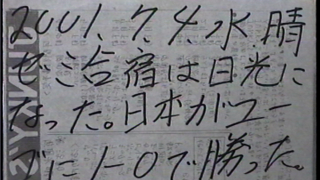 2001. 7. 4. 水. 晴
ゼミ合宿は日光に
なった。日本がユー
ゴに1-0で勝った。